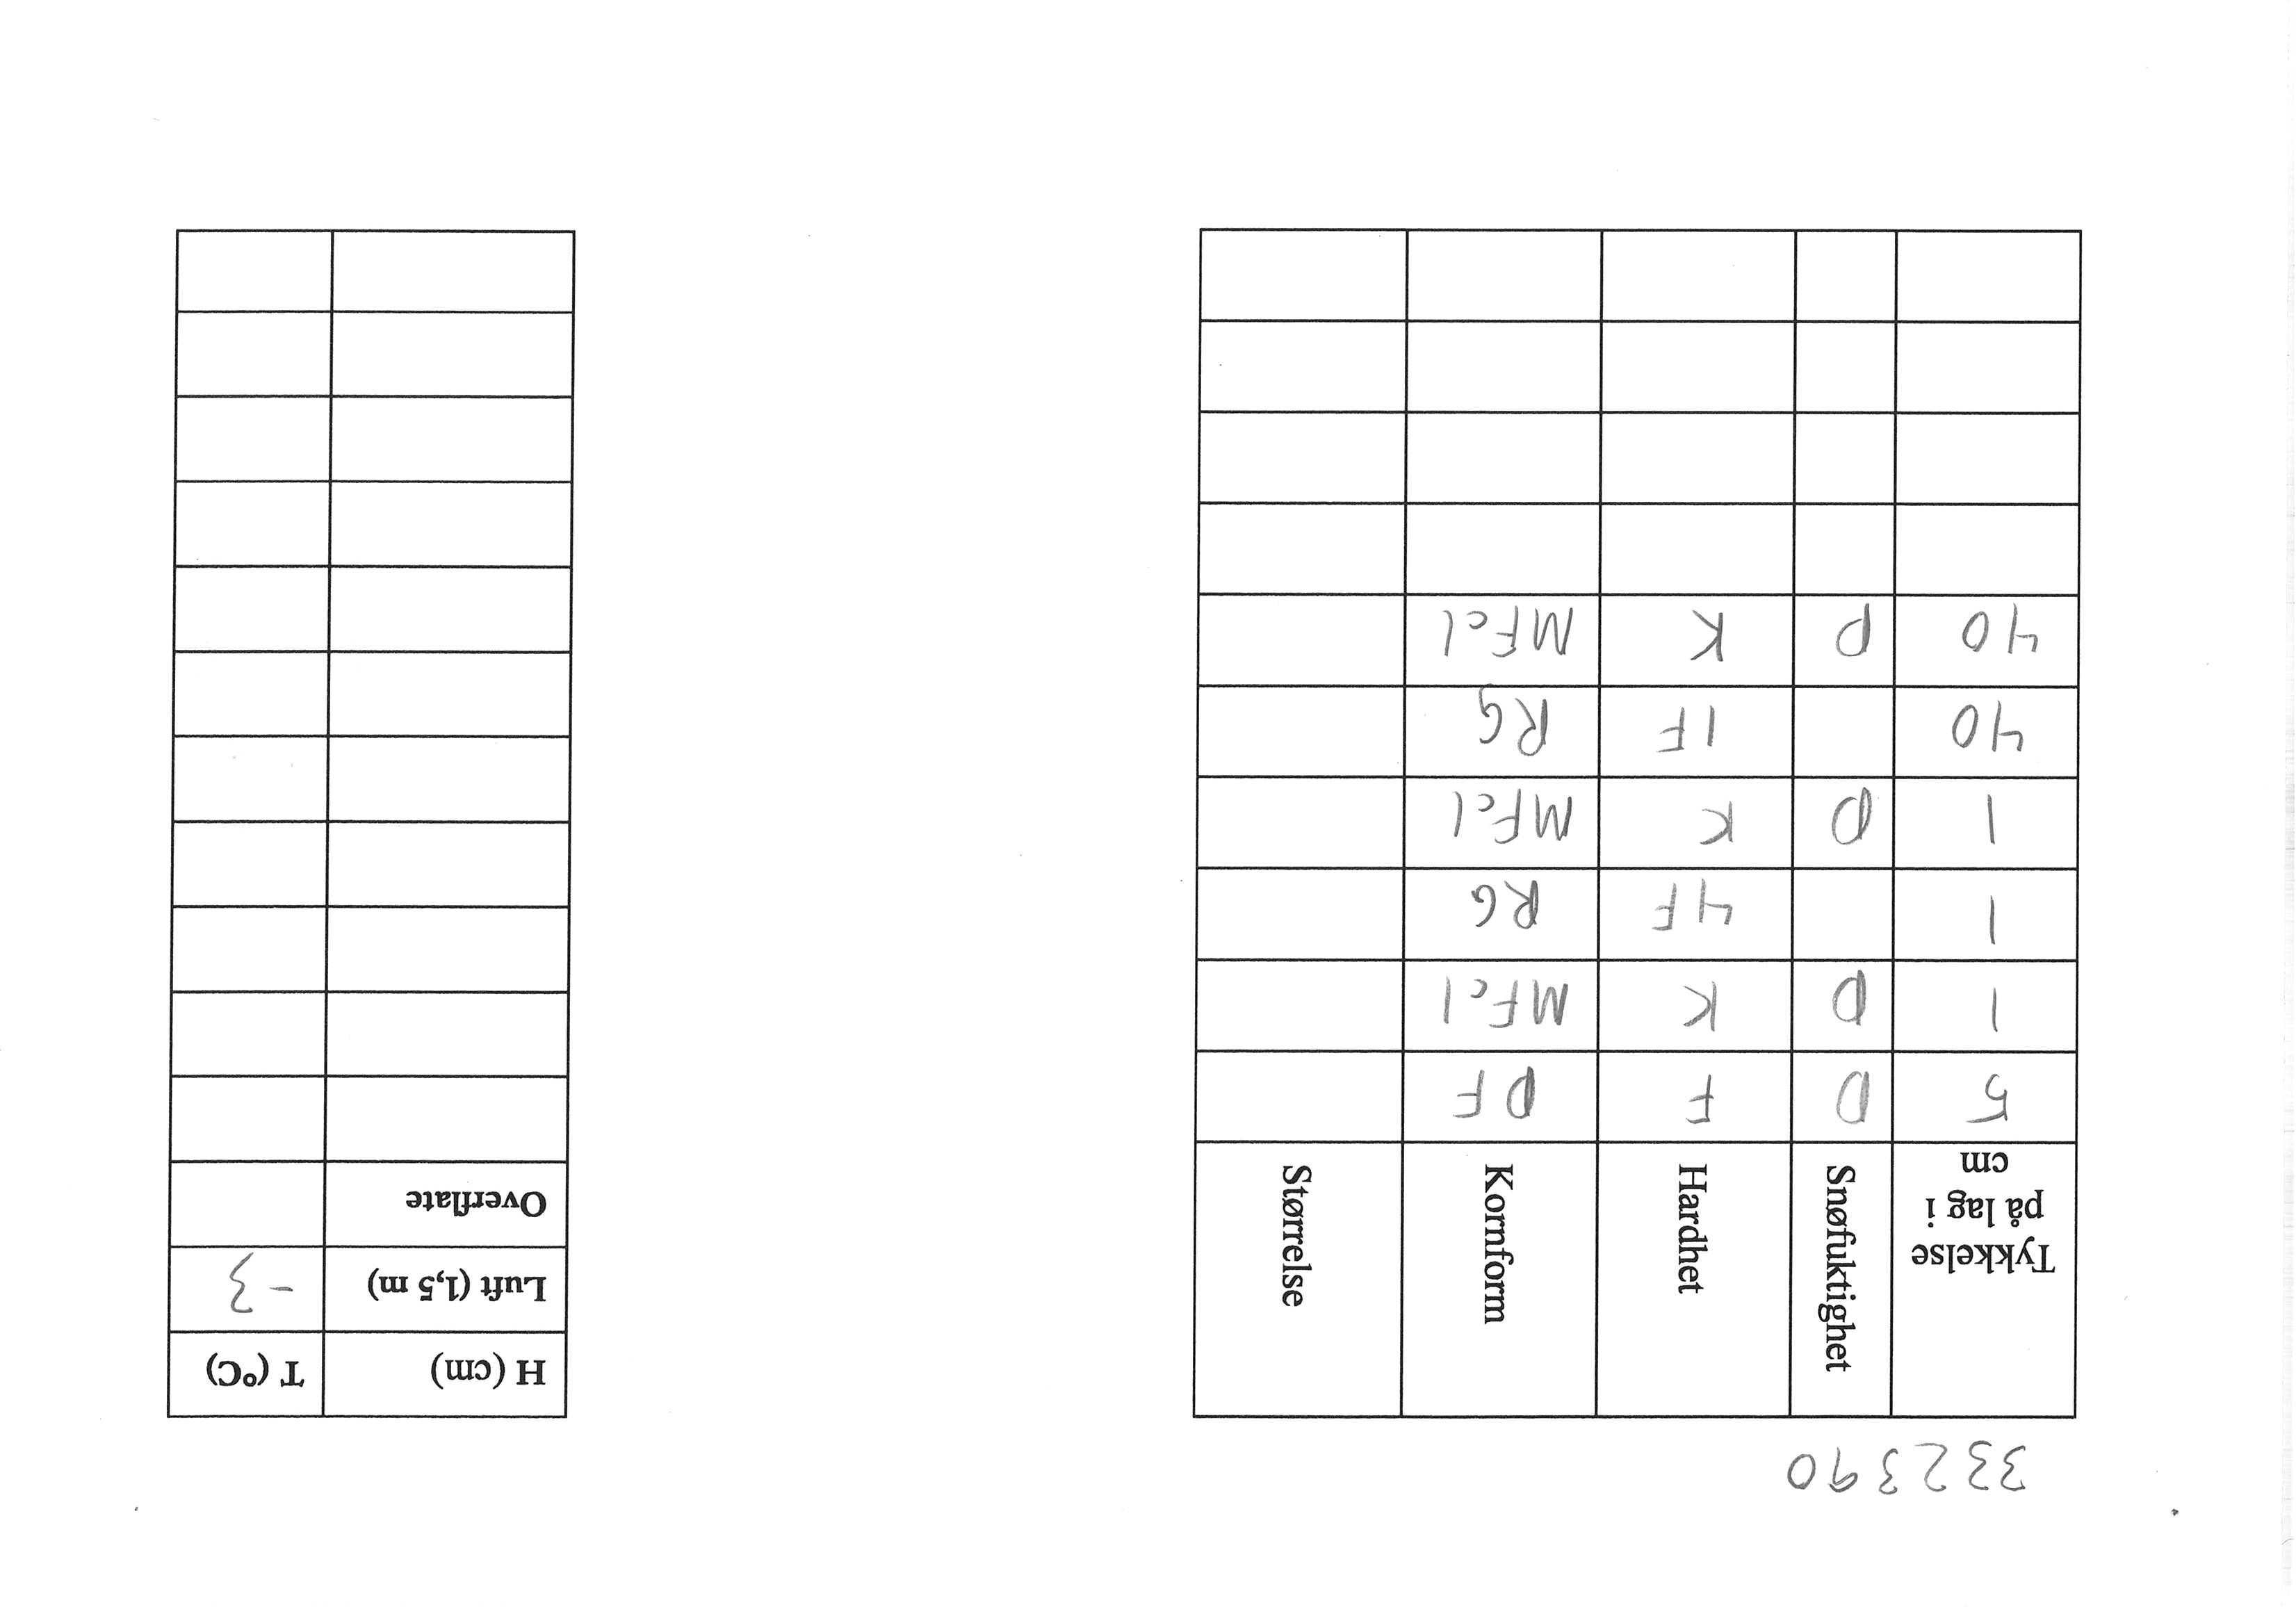 332390
Tykkelse på lag i cm Snøfuktighet Hardhet Kornform Størrelse
5 D F DF
1 D K MFcl
1 4F RG
1 D K MFcl
40 1F RG
40 D K MFcl
H (cm) T (°C)
Luft (1,5 m) -3
Overflate